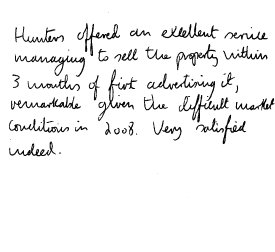 Hunters offered an excellent service
managing to sell the property within
3 months of first advertising it,
remarkable given the difficult market
conditions in 2008. Very satisfied
indeed.